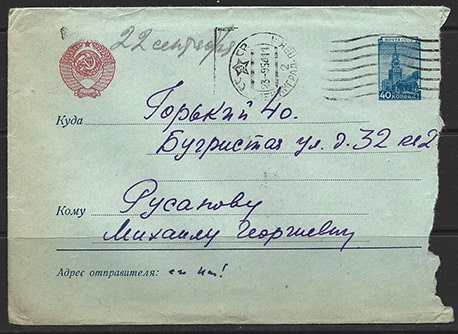 22 сентября
СССР
ПОЧТА СССР
40 КОПЕЕК
Куда Горький 40.
Бугристая ул. д. 32 кв 2
Кому Русанову
Михаилу Георгиевичу
Адрес отправителя: